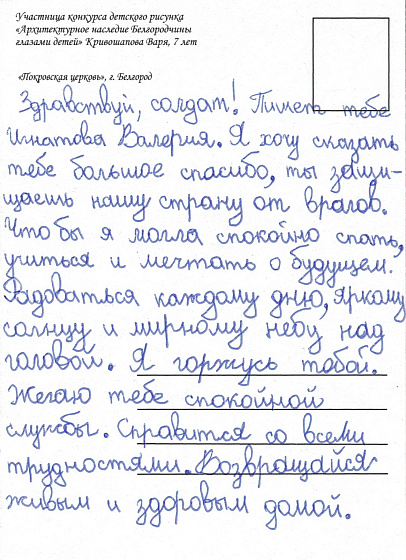 Участница конкурса детского рисунка
«Архитектурное наследие Белгородчины
глазами детей» Кривошапова Варя, 7 лет
«Покровская церковь», г. Белгород
Здравствуй, солдат! Пишет тебе
Игнатова Валерия. Я хочу сказать
тебе большое спасибо, ты защи-
щаешь нашу страну от врагов.
Что бы я могла спокойно спать,
учиться и мечтать о будущем.
Радоваться каждому дню, яркому
солнцу и мирному небу над
головой. Я горжусь тобой.
Желаю тебе спокойной
службы. Справится со всеми
трудностями. Возвращайся
живым и здоровым домой.